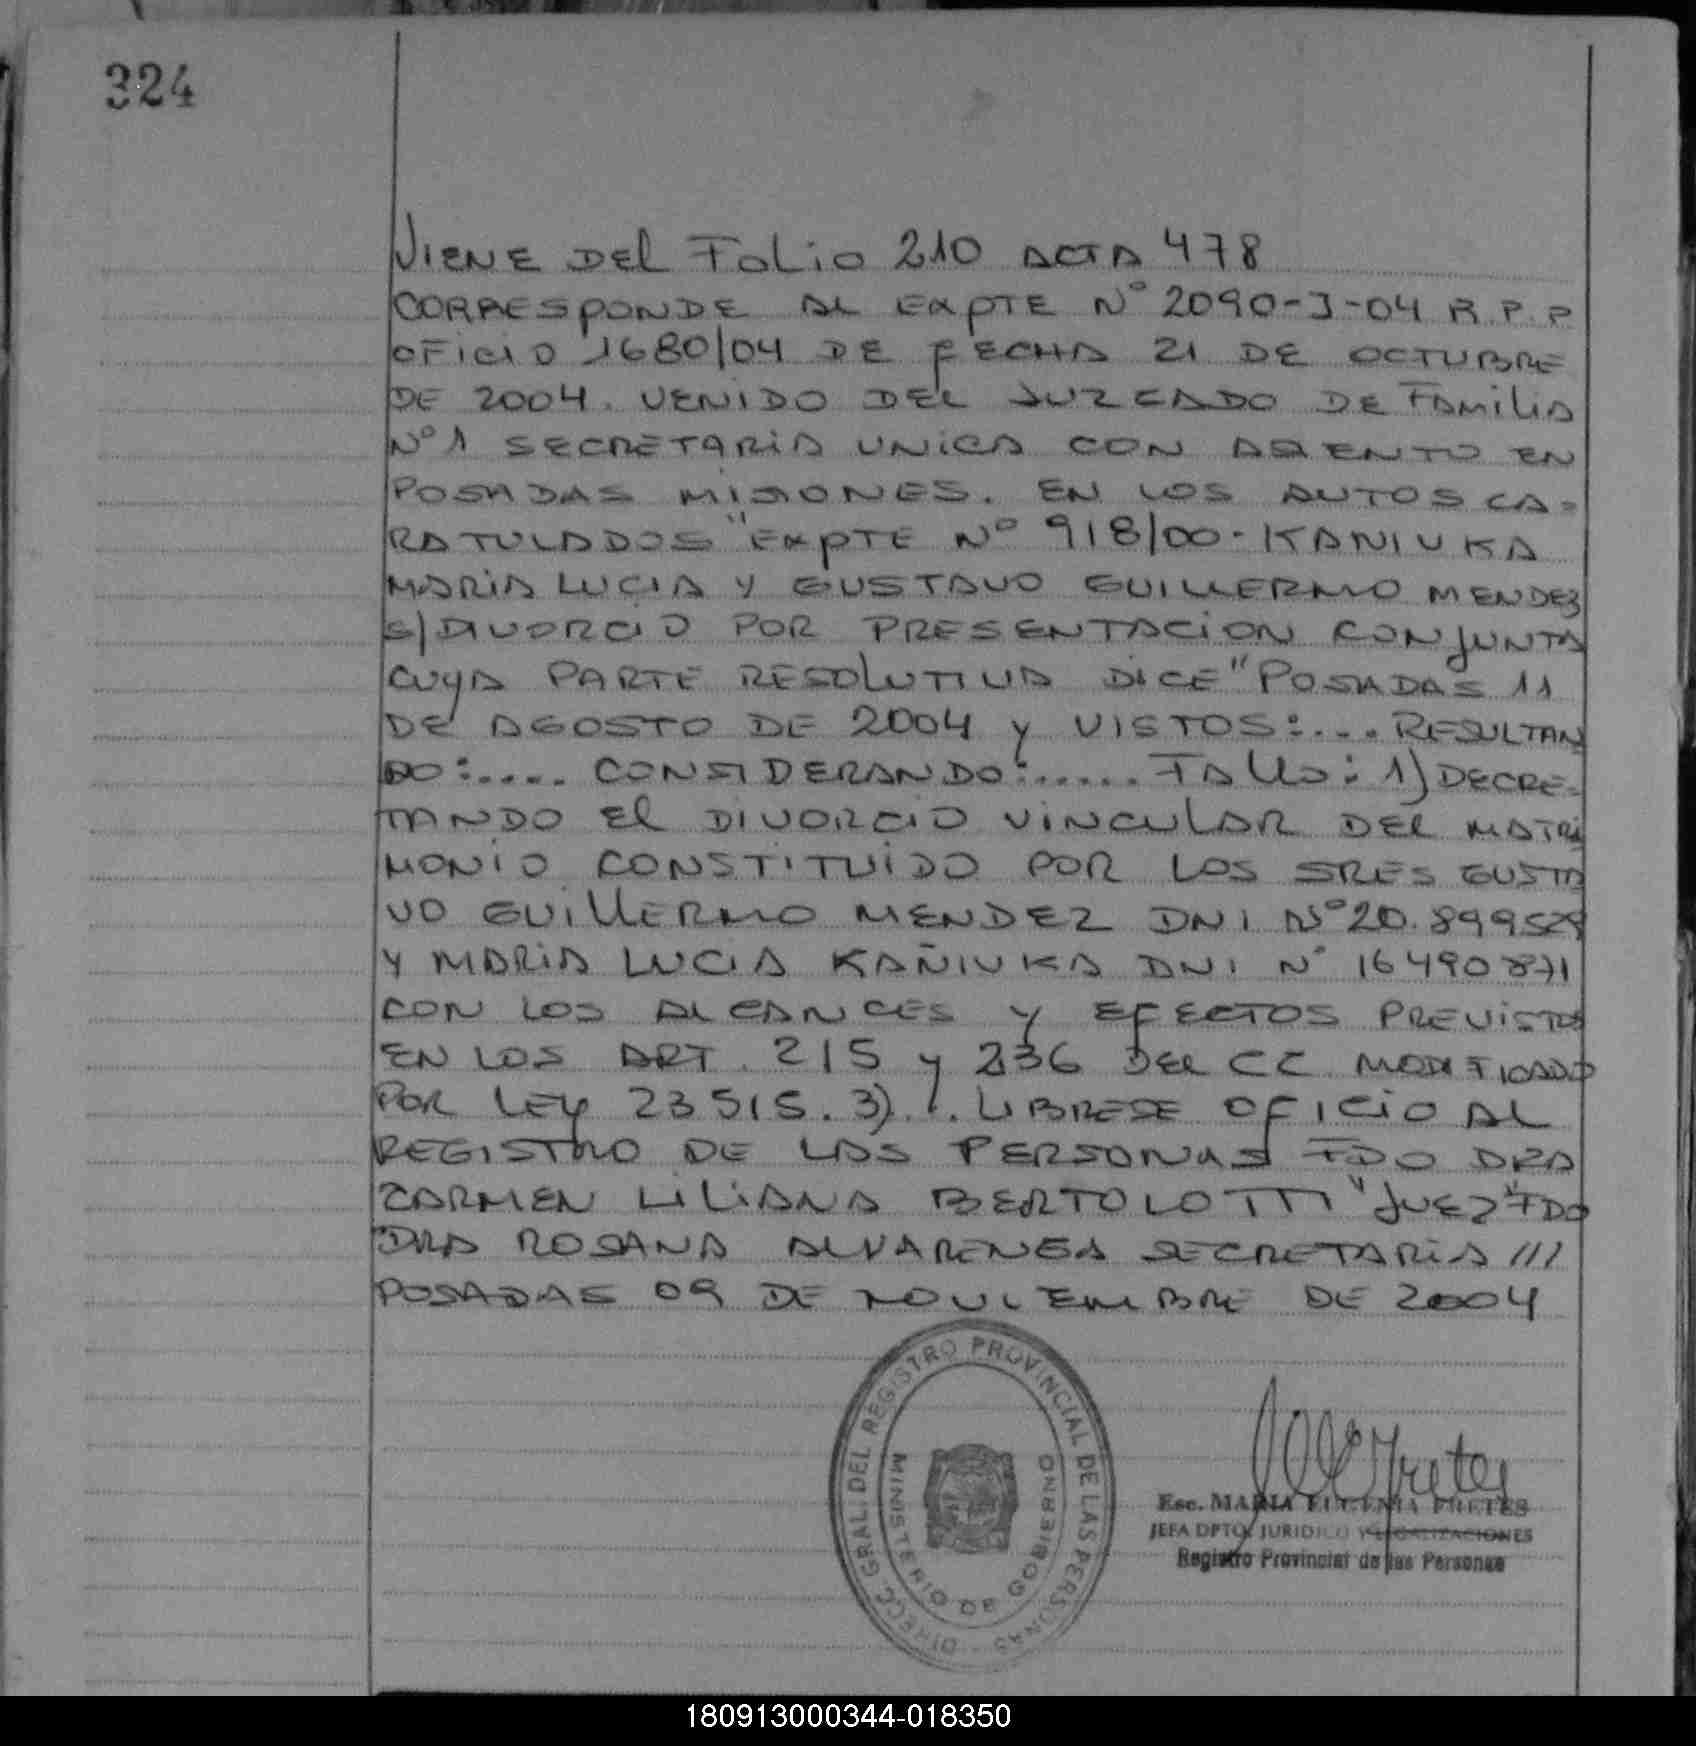 324
VIENE DEL FOLIO 210 ACTA 478
CORRESPONDE AL EXPTE N° 2090-J-04 R.P.P
OFICIO 1680/04 DE FECHA 21 DE OCTUBRE
DE 2004. VENIDO DEL JUZGADO DE FAMILIA
N° 1 SECRETARIA UNICA CON ASIENTO EN
POSADAS MISIONES. EN LOS AUTOS CA-
RATULADOS "EXPTE N° 918/00-KANIUKA
MARIA LUCIA Y GUSTAVO GUILLERMO MENDEZ
S/DIVORCIO POR PRESENTACION CONJUNTA
CUYA PARTE RESOLUTIVA DICE "POSADAS 11
DE AGOSTO DE 2004 y VISTOS:... RESULTAN
DO:.... CONSIDERANDO:...... FALLO: 1) DECRE-
TANDO EL DIVORCIO VINCULAR DEL MATRI
MONIO CONSTITUIDO POR LOS SRES GUSTA
VO GUILLERMO MENDEZ DNI N° 20.899529
Y MARIA LUCIA KAÑIUKA DNI N° 16490871
CON LOS ALCANCES y EFECTOS PREVISTOS
EN LOS ART. 215 y 236 DEL CC MODIFICADO
POR LEY 23515. 3)... LIBRESE OFICIO AL
REGISTRO DE LAS PERSONAS FDO DRA
CARMEN LILIANA BERTOLOTTI "JUEZ" FDO
DRA ROSANA ALVARENGA SECRETARIA ///
POSADAS 09 DE NOVIEMBRE DE 2004
DIRECC. GRAL. DEL REGISTRO PROVINCIAL DE LAS PERSONAS
MINISTERIO DE GOBIERNO
Esc. MARIA EUGENIA FRETES
JEFA DPTO. JURIDICO Y LEGALIZACIONES
Registro Provincial de las Personas
180913000344-018350